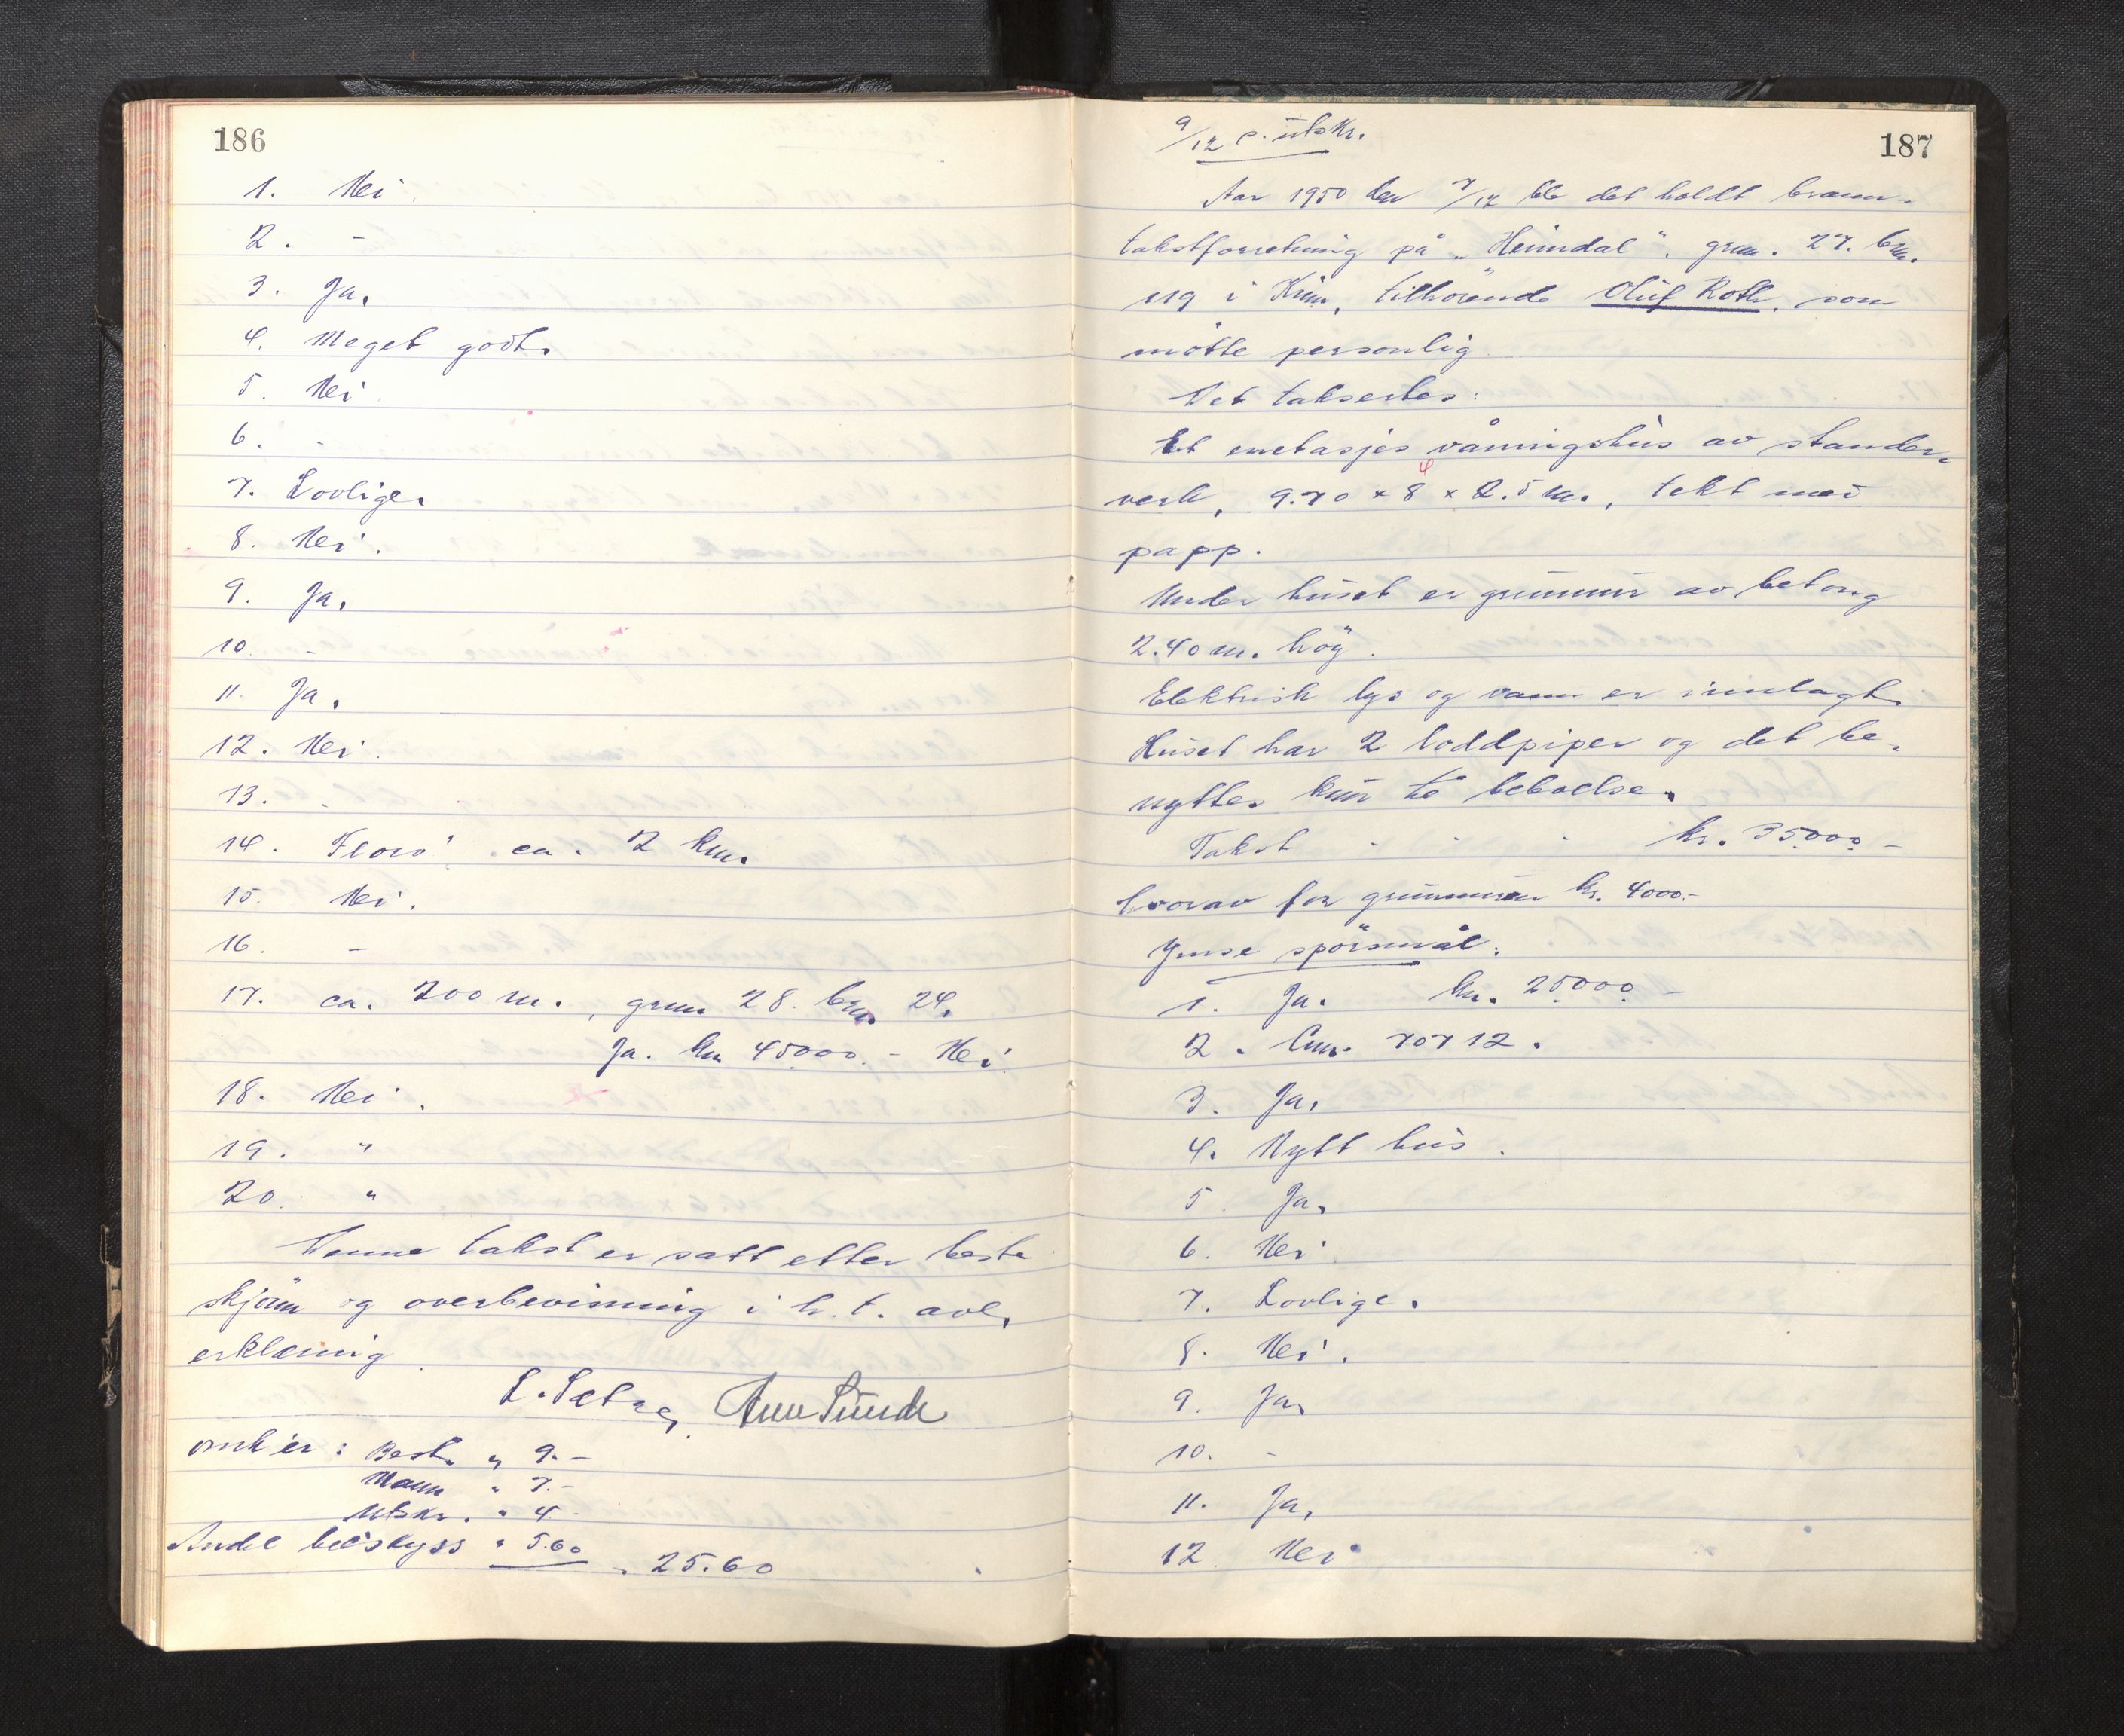 186
1. Nei.
2. -
3. Ja.
4. Meget godt.
5. Nei
6. -
7. Lovlige.
8. Nei.
9. Ja.
10. -
11. Ja.
12. Nei.
13. -
14. Florö. ca. 2 km.
15. Nei.
16. -
17. ca. 200 m., gnr. 28. bnr. 24.
Ja. kr. 45000.- Nei.
18. Nei.
19. "
20. "
Denne takst er satt etter beste
skjönn og overbevisning i h.t. avl.
erklæring.
L. Sætre, Sunde
omk er: Best. " 9.-
Mann " 7.-
Utskr. " 4
Andel bilskyss " 5.60
" 25.60
187
9/12 s. utskr.
Aar 1950 den 7/12 ble det holdt brann-
takstforretning på "Heimdal", gnr. 27. bnr.
119 i Kinn, tilhörende Oluf Roth, som
mötte personlig.
Det takseres:
Et enetasjes våningshus av stender-
verk, 9.70 x 8 x 4 2.5 m., tekt med
papp.
Under huset er grunnmur av betong
2.40 m. höy.
Elektrisk lys og vann er innlagt.
Huset har 2 loddpiper og det be-
nyttes kun til beboelse.
Takst - - - kr. 35000.-
hvorav for grunnmuren kr. 4000.-
Ymse spörsmål:
1. Ja. kr. 25000.-
2. 70712.
3. Ja.
4. Nytt hus.
5. Ja.
6. Nei.
7. Lovlige.
8. Nei.
9. Ja.
10. -
11. Ja.
12 Nei